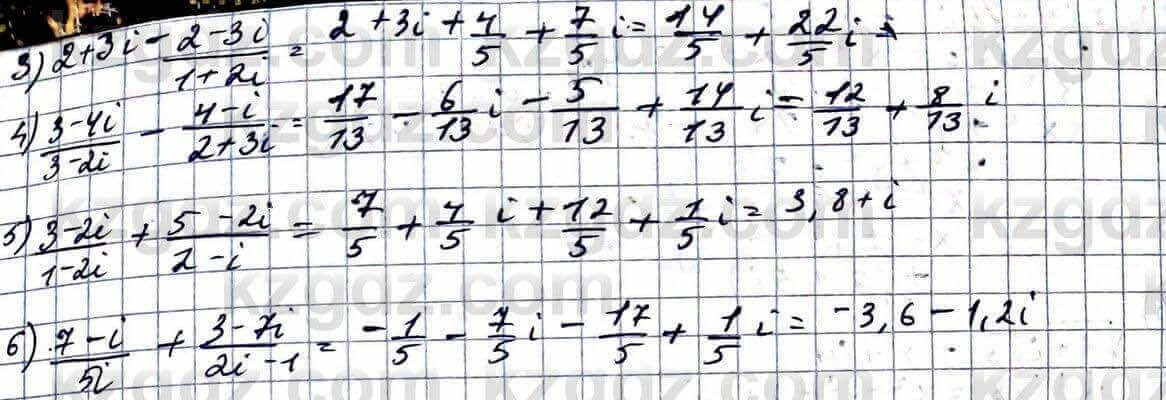 3) 2+3i - \frac{2-3i}{1+2i} = 2+3i + \frac{4}{5} + \frac{7}{5}i = \frac{14}{5} + \frac{22}{5}i
4) \frac{3-4i}{3-2i} - \frac{4-i}{2+3i} = \frac{17}{13} - \frac{6}{13}i - \frac{5}{13} + \frac{14}{13}i = \frac{12}{13} + \frac{8}{13}i
5) \frac{3-2i}{1-2i} + \frac{5-2i}{2-i} = \frac{7}{5} + \frac{4}{5}i + \frac{12}{5} + \frac{1}{5}i = 3,8+i
6) \frac{7-i}{5i} + \frac{3-7i}{2i-1} = -\frac{1}{5} - \frac{7}{5}i - \frac{17}{5} + \frac{1}{5}i = -3,6-1,2i
kzgdz.com